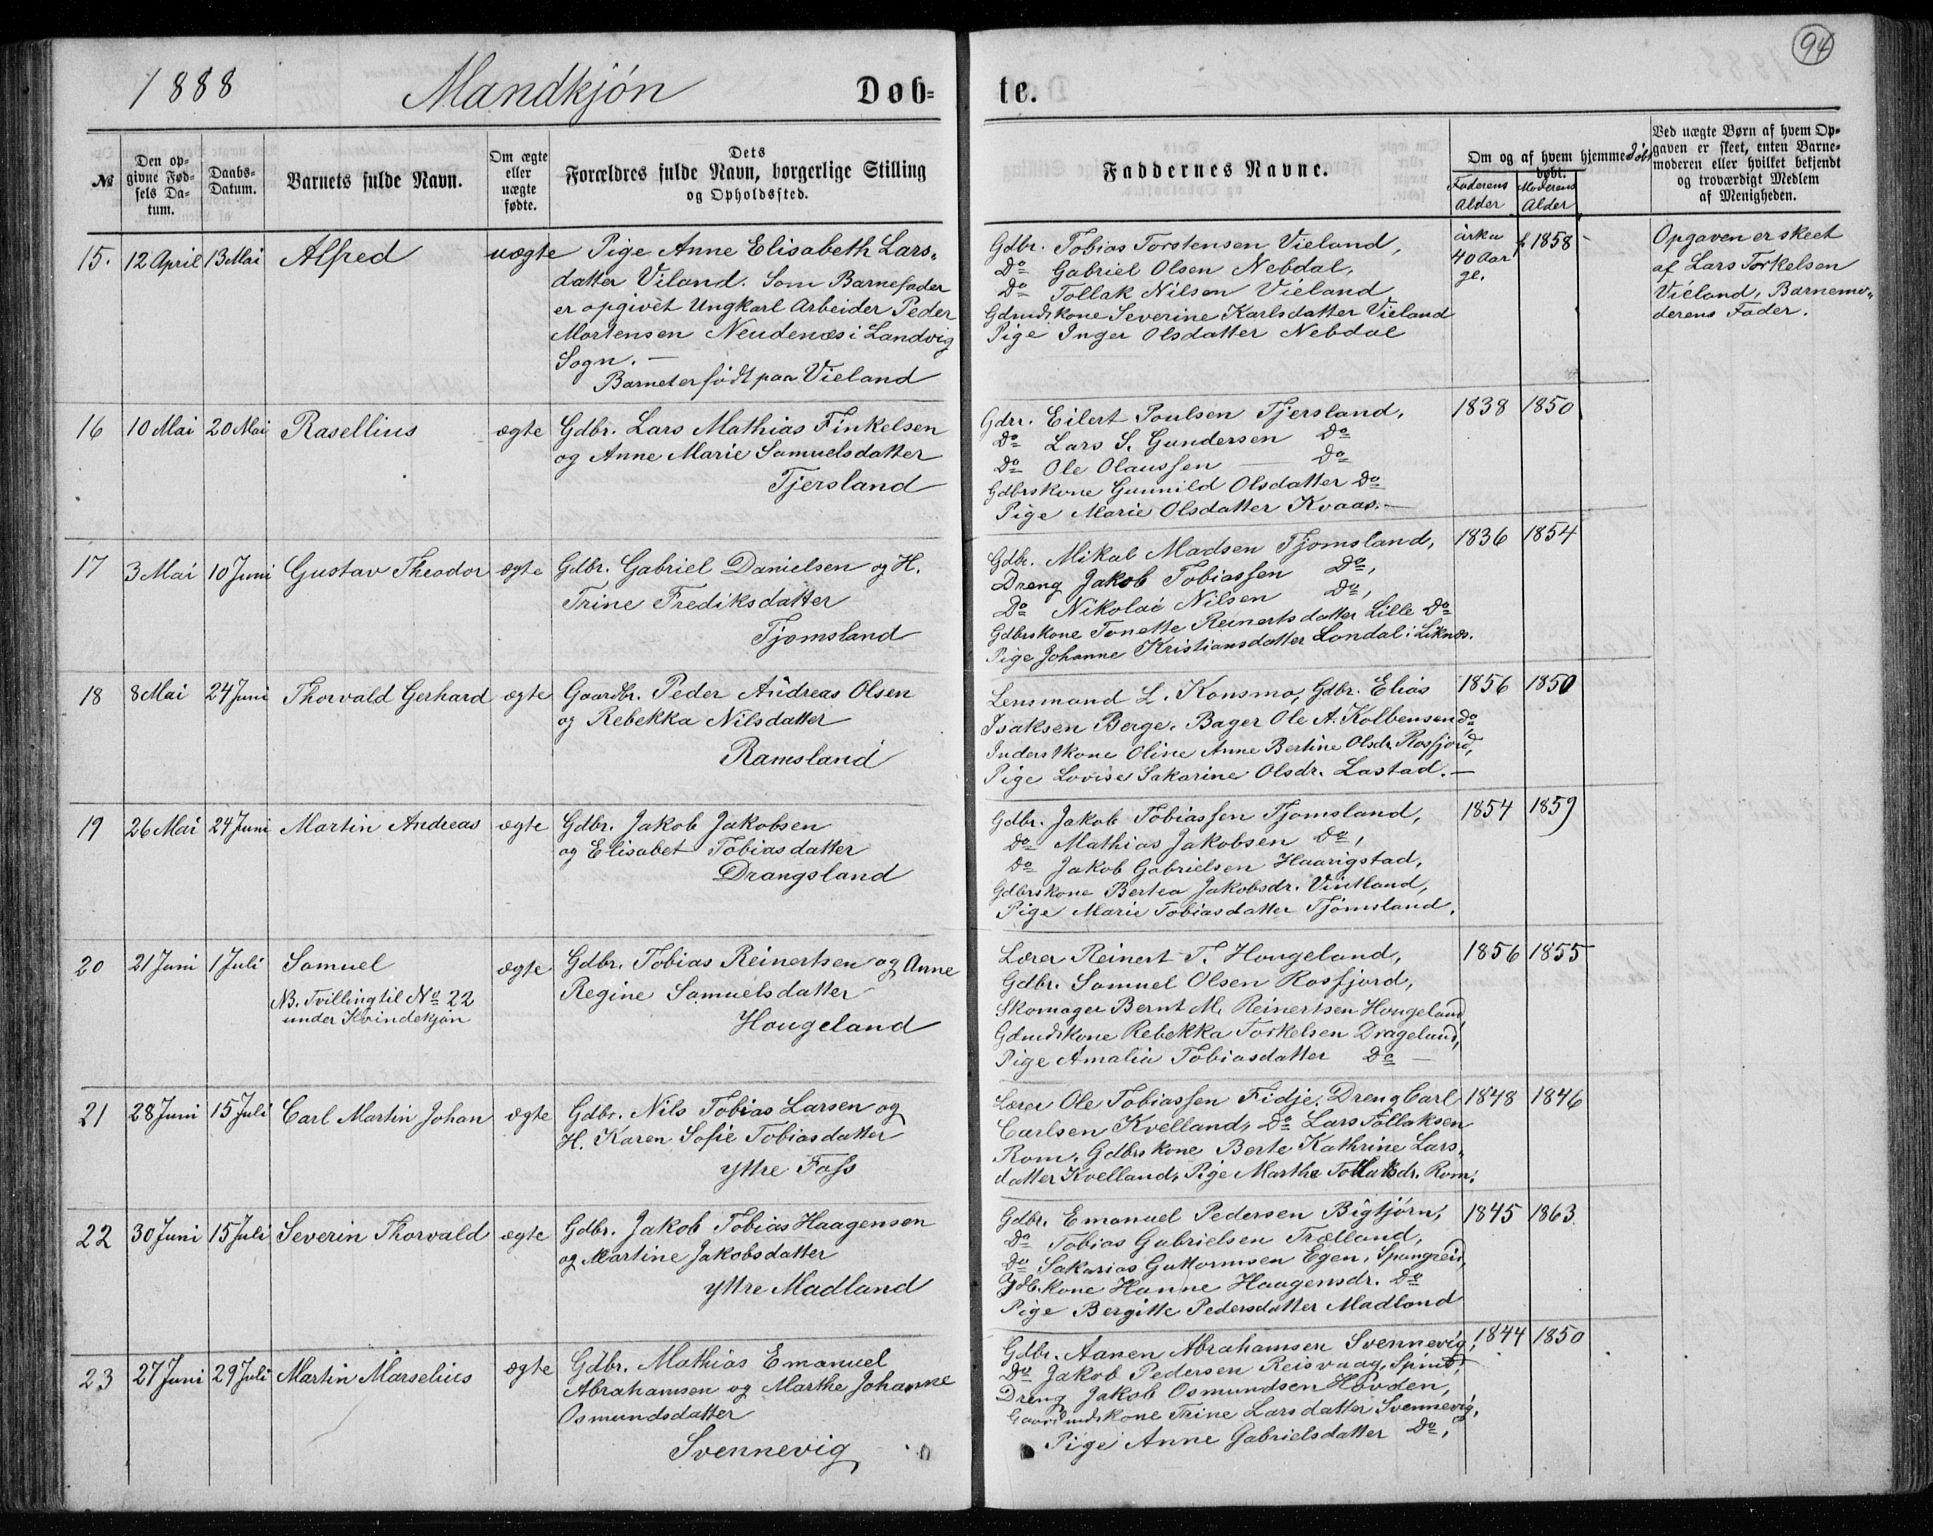 94
1888 Mandkjøn Døb- te.
№
Den op-
givne Fød-
sels Da-
tum.
Daabs-
Datum.
Barnets fulde Navn.
Om ægte
eller
uægte
fødte.
Dets
Forældres fulde Navn, borgerlige Stilling
og Opholdsted.
Faddernes Navne.
Om og af hvem hjemmedøbt
døbt.
Faderens
Alder
Moderens
Alder
Ved uægte Børn af hvem Op-
gaven er skeet, enten Barne-
moderen eller hvilket bekjendt
og troværdigt Medlem
af Menigheden.
15. 12 April 13 Mai Alfred uægte Pige Anne Elisabeth Lars-
datter Viland. Som Barnefader
er opgivet Ungkarl Arbeider Peder
Mortensen Neudenæs i Landvig
Sogn. —
Barnet er født paa Vieland
Gdbr. Tobias Torstensen Vieland,
Do Gabriel Olsen Nebdal,
Do Tollak Nilsen Vieland
Gdmdskone Severine Karlsdatter Vieland
Pige Inger Olsdatter Nebdal
cirka
40 Aar
gl.
f 1858 -
Opgaven er skeet
af Lars Torkelsen
Vieland, Barnemo-
derens Fader.
16 10 Mai 20 Mai Rasellius ægte Gdbr. Lars Mathias Finkelsen
og Anne Marie Samuelsdatter
Tjersland
Gdrr. Eilert Poulsen Tjersland,
Do Lars S. Gundersen Do
Do Ole Olaussen — Do
Gdbrskone Gunnild Olsdatter Do
Pige Marie Olsdatter Kvaas. —
1838 1850
17 3 Mai 10 Juni Gustav Theodor ægte Gdbr. Gabriel Danielsen og H.
Trine Frediksdatter
Tjomsland
Gdbr. Mikal Madsen Tjomsland,
Dreng Jakob Tobiassen Do,
Do Nikolai Nilsen Do,
Gdbrskone Tonette Reinertsdatter Lille Do
Pige Johanne Kristiansdatter Londal i Liknes.
1836 1854
18 8 Mai 24 Juni Thorvald Gerhard ægte Gaardbr. Peder Andreas Olsen
og Rebekka Nilsdatter
Ramsland
Lensmand L. Konsmo, Gdbr. Elias
Isaksen Berge. Bager Ole A. Kolbensen Do,
Inderstkone Oline Anne Bertine Olsdr. Rosfjord,
Pige Lovise Sakarine Olsdr. Lastad. —
1856 1850
19 26 Mai 24 Juni Martin Andreas ægte Gdbr. Jakob Jakobsen
og Elisabet Tobiasdatter
Drangsland
Gdbr. Jakob Tobiassen Tjomsland,
Do Mathias Jakobsen Do,
Do Jakob Gabrielsen Haarigstad,
Gdbrskone Bertea Jakobsdr. Vintland,
Pige Marie Tobiasdatter Tjomsland.
1854 1859
20 21 Juni 1 Juli Samuel ægte Gdbr. Tobias Reinertsen og Anne
NB. Tvilling til No 22
under Kvindekjøn
Regine Samuelsdatter
Hougeland
Lærer Reinert T. Hougeland,
Gdbr. Samuel Olsen Rosfjord,
Skomager Bernt M. Reinertsen Hougeland
Gdmdskone Rebekka Torkelsen Drageland,
Pige Amalia Tobiasdatter Do —
1856 1855
21 28 Juni 15 Juli Carl Martin Johan ægte Gdbr. Nils Tobias Larsen og
H. Karen Sofie Tobiasdatter
Yttre Foss
Lærer Ole Tobiassen Fidje. Dreng Carl
Carlsen Kvelland, Do Lars Tollaksen
Rom. Gdbrskone Berte Kathrine Lars-
datter Kvelland, Pige Marthe Tollaksdr. Rom.
1848 1846
22 30 Juni 15 Juli Severin Thorvald ægte Gdbr. Jakob Tobias Haagensen
og Martine Jakobsdatter
Yttre Madland
Gdbr. Emanuel Pedersen Bigtjørn,
Do Tobias Gabrielsen Trælland,
Do Sakarias Guttormsen Egen, Spangreid,
Gdb.kone Hanne Haagensdr. Do
Pige Bergitte Pedersdatter Madland
1845 1863
23 27 Juni 29 Juli Martin Marselius ægte Gdbr. Mathias Emanuel
Abrahamsen og Marthe Johanne
Osmundsdatter
Svennevig
Gdbr. Aanen Abrahamsen Svennevig,
Do Jakob Pedersen Reisvaag, Spind,
Dreng Jakob Osmundsen Hovden,
Gaardmdskone Trine Larsdatter Svennevig,
Pige Anne Gabrielsdatter Do,
1844 1850